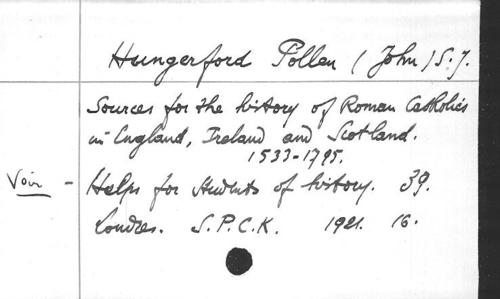 Hungerford Pollen (John) S.J.
Sources for the history of Roman Catholics
in England, Ireland and Scotland.
1533-1795.
Voir - Helps for students of history. 39.
Londres. S.P.C.K. 1921. 16.